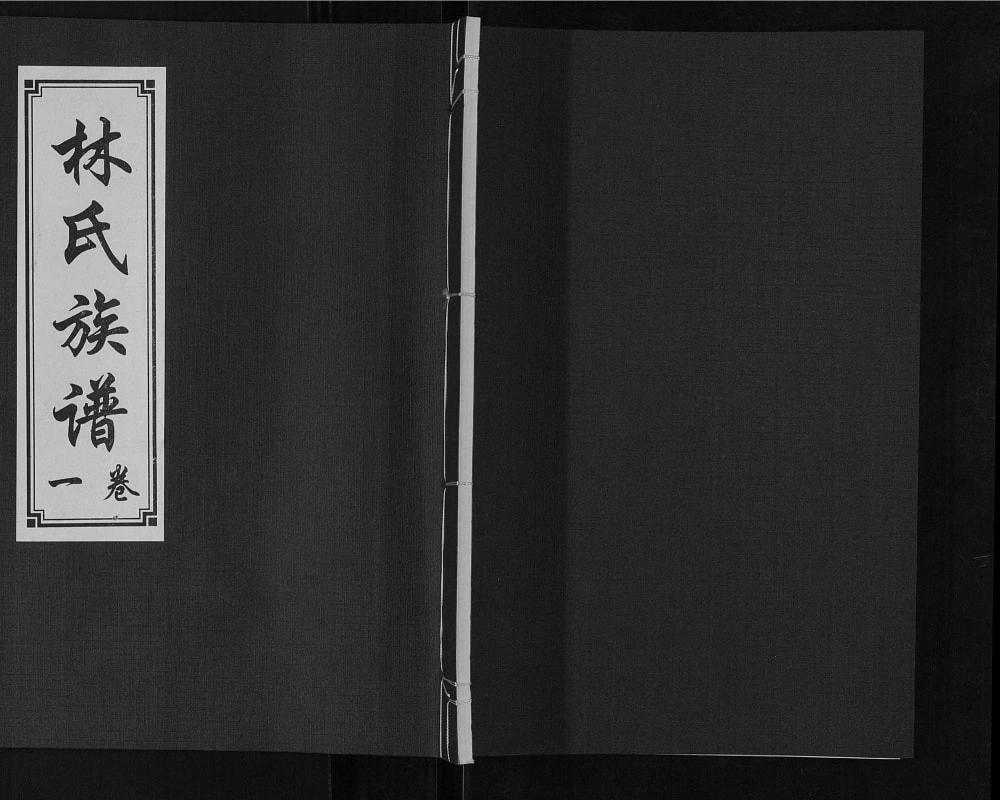 林氏族谱
卷一